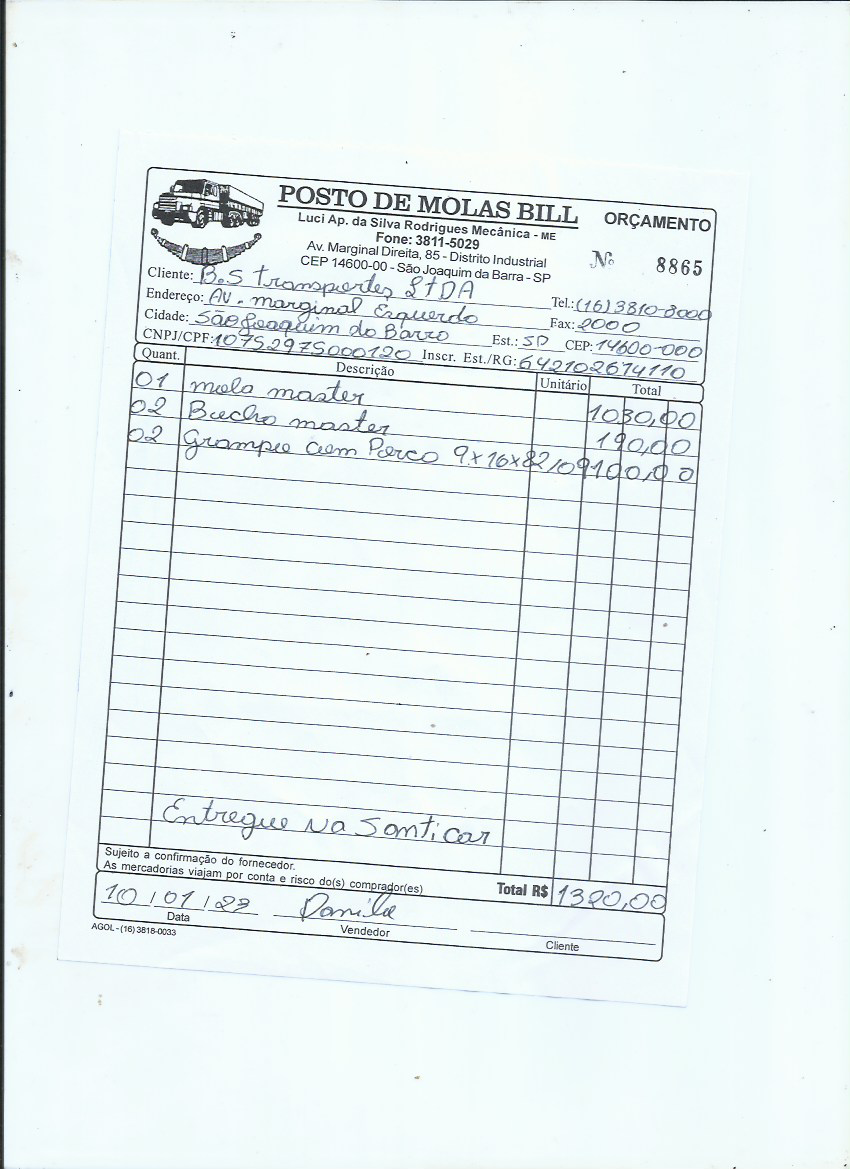 POSTO DE MOLAS BILL
ORÇAMENTO
Luci Ap. da Silva Rodrigues Mecânica - ME
Fone: 3811-5029
Av. Marginal Direita, 85 - Distrito Industrial
CEP 14600-00 - São Joaquim da Barra - SP
Nº 8865
Cliente: B.S Transportes LTDA
Endereço: AV. marginal Esquerdo Tel.: (16) 3810-2000
Cidade: São Joaquim do Barro Fax: 2000
Est.: SP CEP: 14600-000
CNPJ/CPF: 10752975000120 Inscr. Est./RG: 642102614110
Quant. Descrição Unitário Total
01 mola master 1030,00
02 Bucha master 190,00
02 Grampo com Porca 9x16x82/09 100,00
Entregue Na Santicar
Sujeito a confirmação do fornecedor.
As mercadorias viajam por conta e risco do(s) comprador(es)
Total R$ 1320,00
10/01/23 Danilo
Data Vendedor Cliente
AGOL - (16) 3818-0033